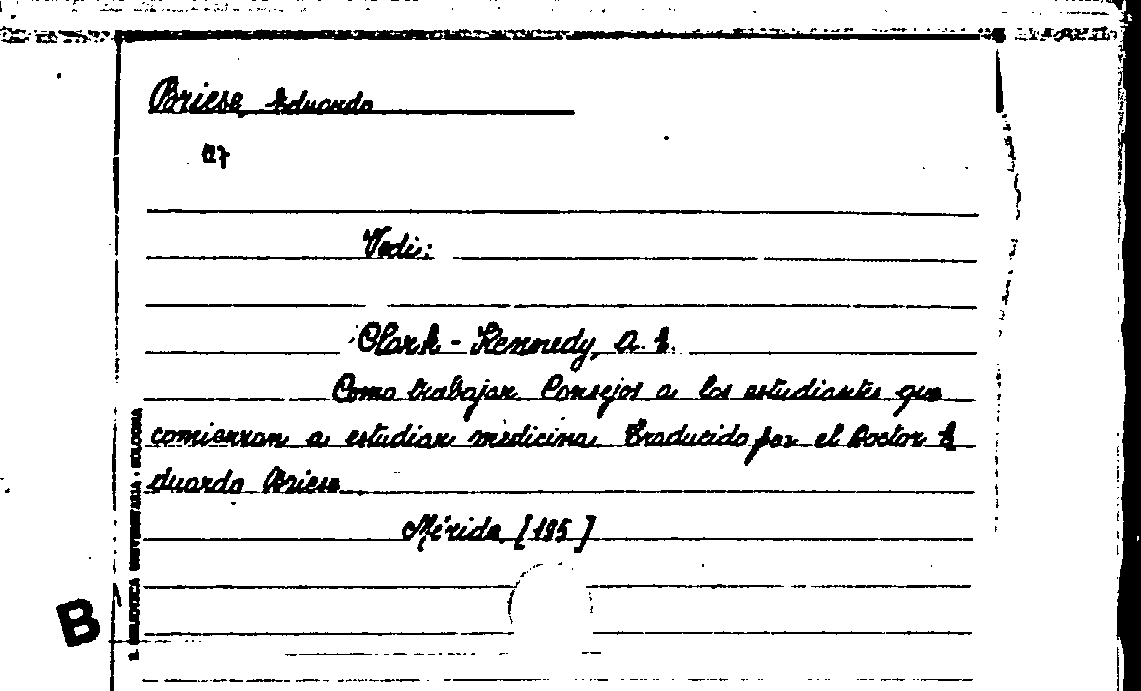 Briese, Eduardo
Vedi:
Clark-Kennedy, A. E.
Como trabajar. Consejos a los estudiantes que
comienzan a estudiar medicina. Traducido por el Doctor E
duardo Briese
Mérida, [195 ]
B
R. BIBLIOTECA UNIVERSITARIA - BOLOGNA